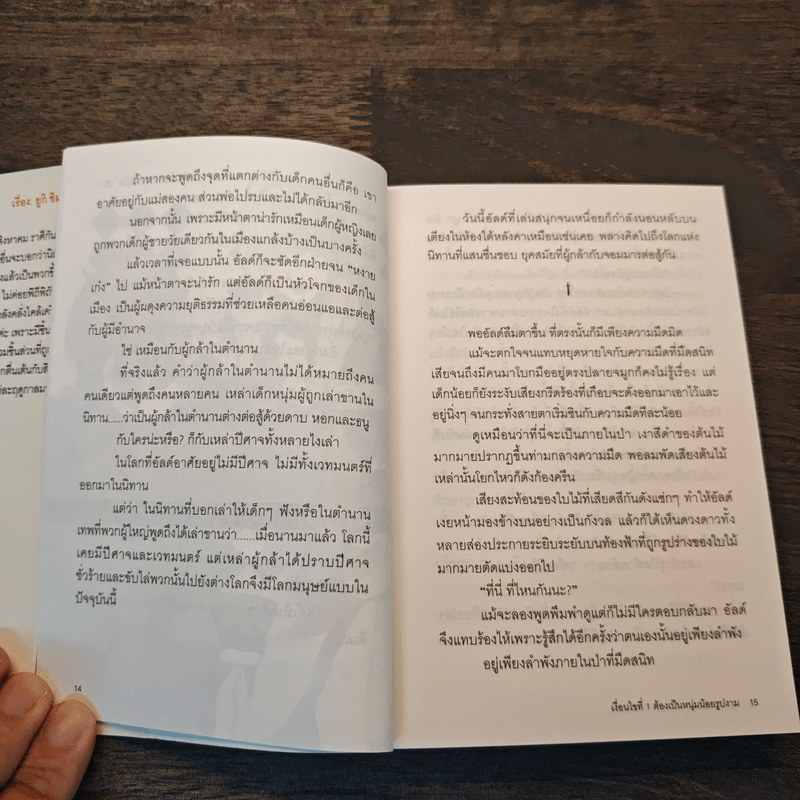 เรื่อง: ยูกิ ชิม
สิงหาคม ราศีกัน
อื่นจะบอกว่านิ
ถ้าหากจะพูดถึงจุดที่แตกต่างกับเด็กคนอื่นก็คือ เขา
อาศัยอยู่กับแม่สองคน ส่วนพ่อไปรบและไม่ได้กลับมาอีก
นอกจากนั้น เพราะมีหน้าตาน่ารักเหมือนเด็กผู้หญิงเลย
ถูกพวกเด็กผู้ชายวัยเดียวกันในเมืองแกล้งบ้างเป็นบางครั้ง
แล้วเวลาที่เจอแบบนั้น อัลด์ก็จะซัดอีกฝ่ายจน “หงาย
เก๋ง” ไป แม้หน้าตาจะน่ารัก แต่อัลด์ก็เป็นหัวโจกของเด็กใน
เมือง เป็นผู้ผดุงความยุติธรรมที่ช่วยเหลือคนอ่อนแอและต่อสู้
กับผู้มีอำนาจ
ใช่ เหมือนกับผู้กล้าในตำนาน
ที่จริงแล้ว คำว่าผู้กล้าในตำนานไม่ได้หมายถึงคน
คนเดียวแต่พูดถึงคนหลายคน เหล่าเด็กหนุ่มผู้ถูกเล่าขานใน
นิทาน......ว่าเป็นผู้กล้าในตำนานต่างต่อสู้ด้วยดาบ หอกและธนู
กับใครน่ะหรือ? ก็กับเหล่าปีศาจทั้งหลายไงเล่า
ในโลกที่อัลด์อาศัยอยู่ไม่มีปีศาจ ไม่มีทั้งเวทมนตร์ที่
ออกมาในนิทาน
แต่ว่า ในนิทานที่บอกเล่าให้เด็กๆ ฟังหรือในตำนาน
เทพที่พวกผู้ใหญ่พูดถึงได้เล่าขานว่า......เมื่อนานมาแล้ว โลกนี้
เคยมีปีศาจและเวทมนตร์ แต่เหล่าผู้กล้าได้ปราบปีศาจ
ชั่วร้ายและขับไล่พวกนั้นไปยังต่างโลกจึงมีโลกมนุษย์แบบใน
ปัจจุบันนี้
14
วันนี้อัลด์ที่เล่นสนุกจนเหนื่อยก็กำลังนอนหลับบน
เตียงในห้องใต้หลังคาเหมือนเช่นเคย พลางคิดไปถึงโลกแห่ง
นิทานที่แสนชื่นชอบ ยุคสมัยที่ผู้กล้ากับจอมมารต่อสู้กัน
†
พออัลด์ลืมตาขึ้น ที่ตรงนั้นก็มีเพียงความมืดมิด
แม้จะตกใจจนแทบหยุดหายใจกับความมืดที่มืดสนิท
เสียจนถึงมีคนมาโบกมืออยู่ตรงปลายจมูกก็คงไม่รู้เรื่อง แต่
เด็กน้อยก็ยังระงับเสียงกรีดร้องที่เกือบจะดังออกมาเอาไว้และ
อยู่นิ่งๆ จนกระทั่งสายตาเริ่มชินกับความมืดทีละน้อย
ดูเหมือนว่าที่นี่จะเป็นภายในป่า เงาสีดำของต้นไม้
มากมายปรากฏขึ้นท่ามกลางความมืด พอลมพัดเสียงต้นไม้
เหล่านั้นโยกไหวก็ดังก้องครืน
เสียงสะท้อนของใบไม้ที่เสียดสีกันดังแซ่กๆ ทำให้อัลด์
เงยหน้ามองข้างบนอย่างเป็นกังวล แล้วก็ได้เห็นดวงดาวทั้ง
หลายส่องประกายระยิบระยับบนท้องฟ้าที่ถูกรูปร่างของใบไม้
มากมายตัดแบ่งออกไป
“ที่นี่ ที่ไหนกันนะ?”
แม้จะลองพูดพึมพำดูแต่ก็ไม่มีใครตอบกลับมา อัลด์
จึงแทบร้องไห้เพราะรู้สึกได้อีกครั้งว่าตนเองนั้นอยู่เพียงลำพัง
อยู่เพียงลำพังภายในป่าที่มืดสนิท
เงื่อนไขที่ 1 ต้องเป็นหนุ่มน้อยรูปงาม 15